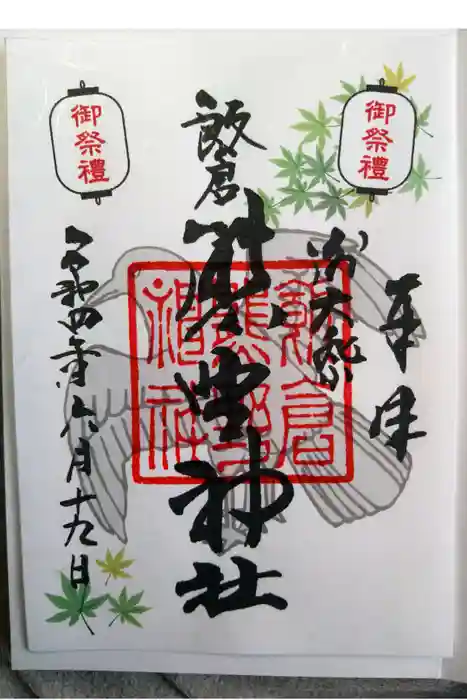 御祭禮
御祭禮
奉拝
飯倉
熊野神社
飯倉
熊野
神社
令和四年六月十九日